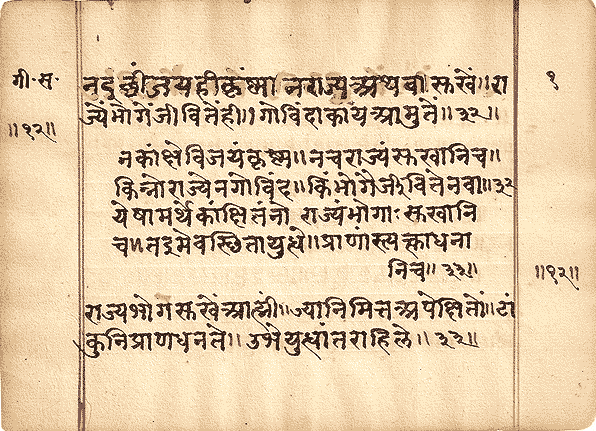 गी॰ स॰
१
॥१२॥
नइछींजयहीकृष्णा नराज्यअथवासुखें॥रा
ज्येंभोगेंजीवितेंही॥गोविंदाकायआमुतें॥३२॥
नकांक्षेविजयंकृष्ण॥नचराज्यंसुखानिच॥
किंनोराज्येनगोविंद॥किंभोगैर्जीवितेनवा॥३२
येषामर्थेकांक्षितंनो राज्यंभोगाःसुखानि
चतइमेवस्छितायुद्धे॥प्राणांस्त्यक्त्वाधना
निच॥३३॥
॥१२॥
राज्यभोगसुखेंआह्मी॥ज्यानिमित्तअपेक्षितों॥टा
कुनिप्राणधनतें॥उभेयुद्धांतराहिले॥३३॥